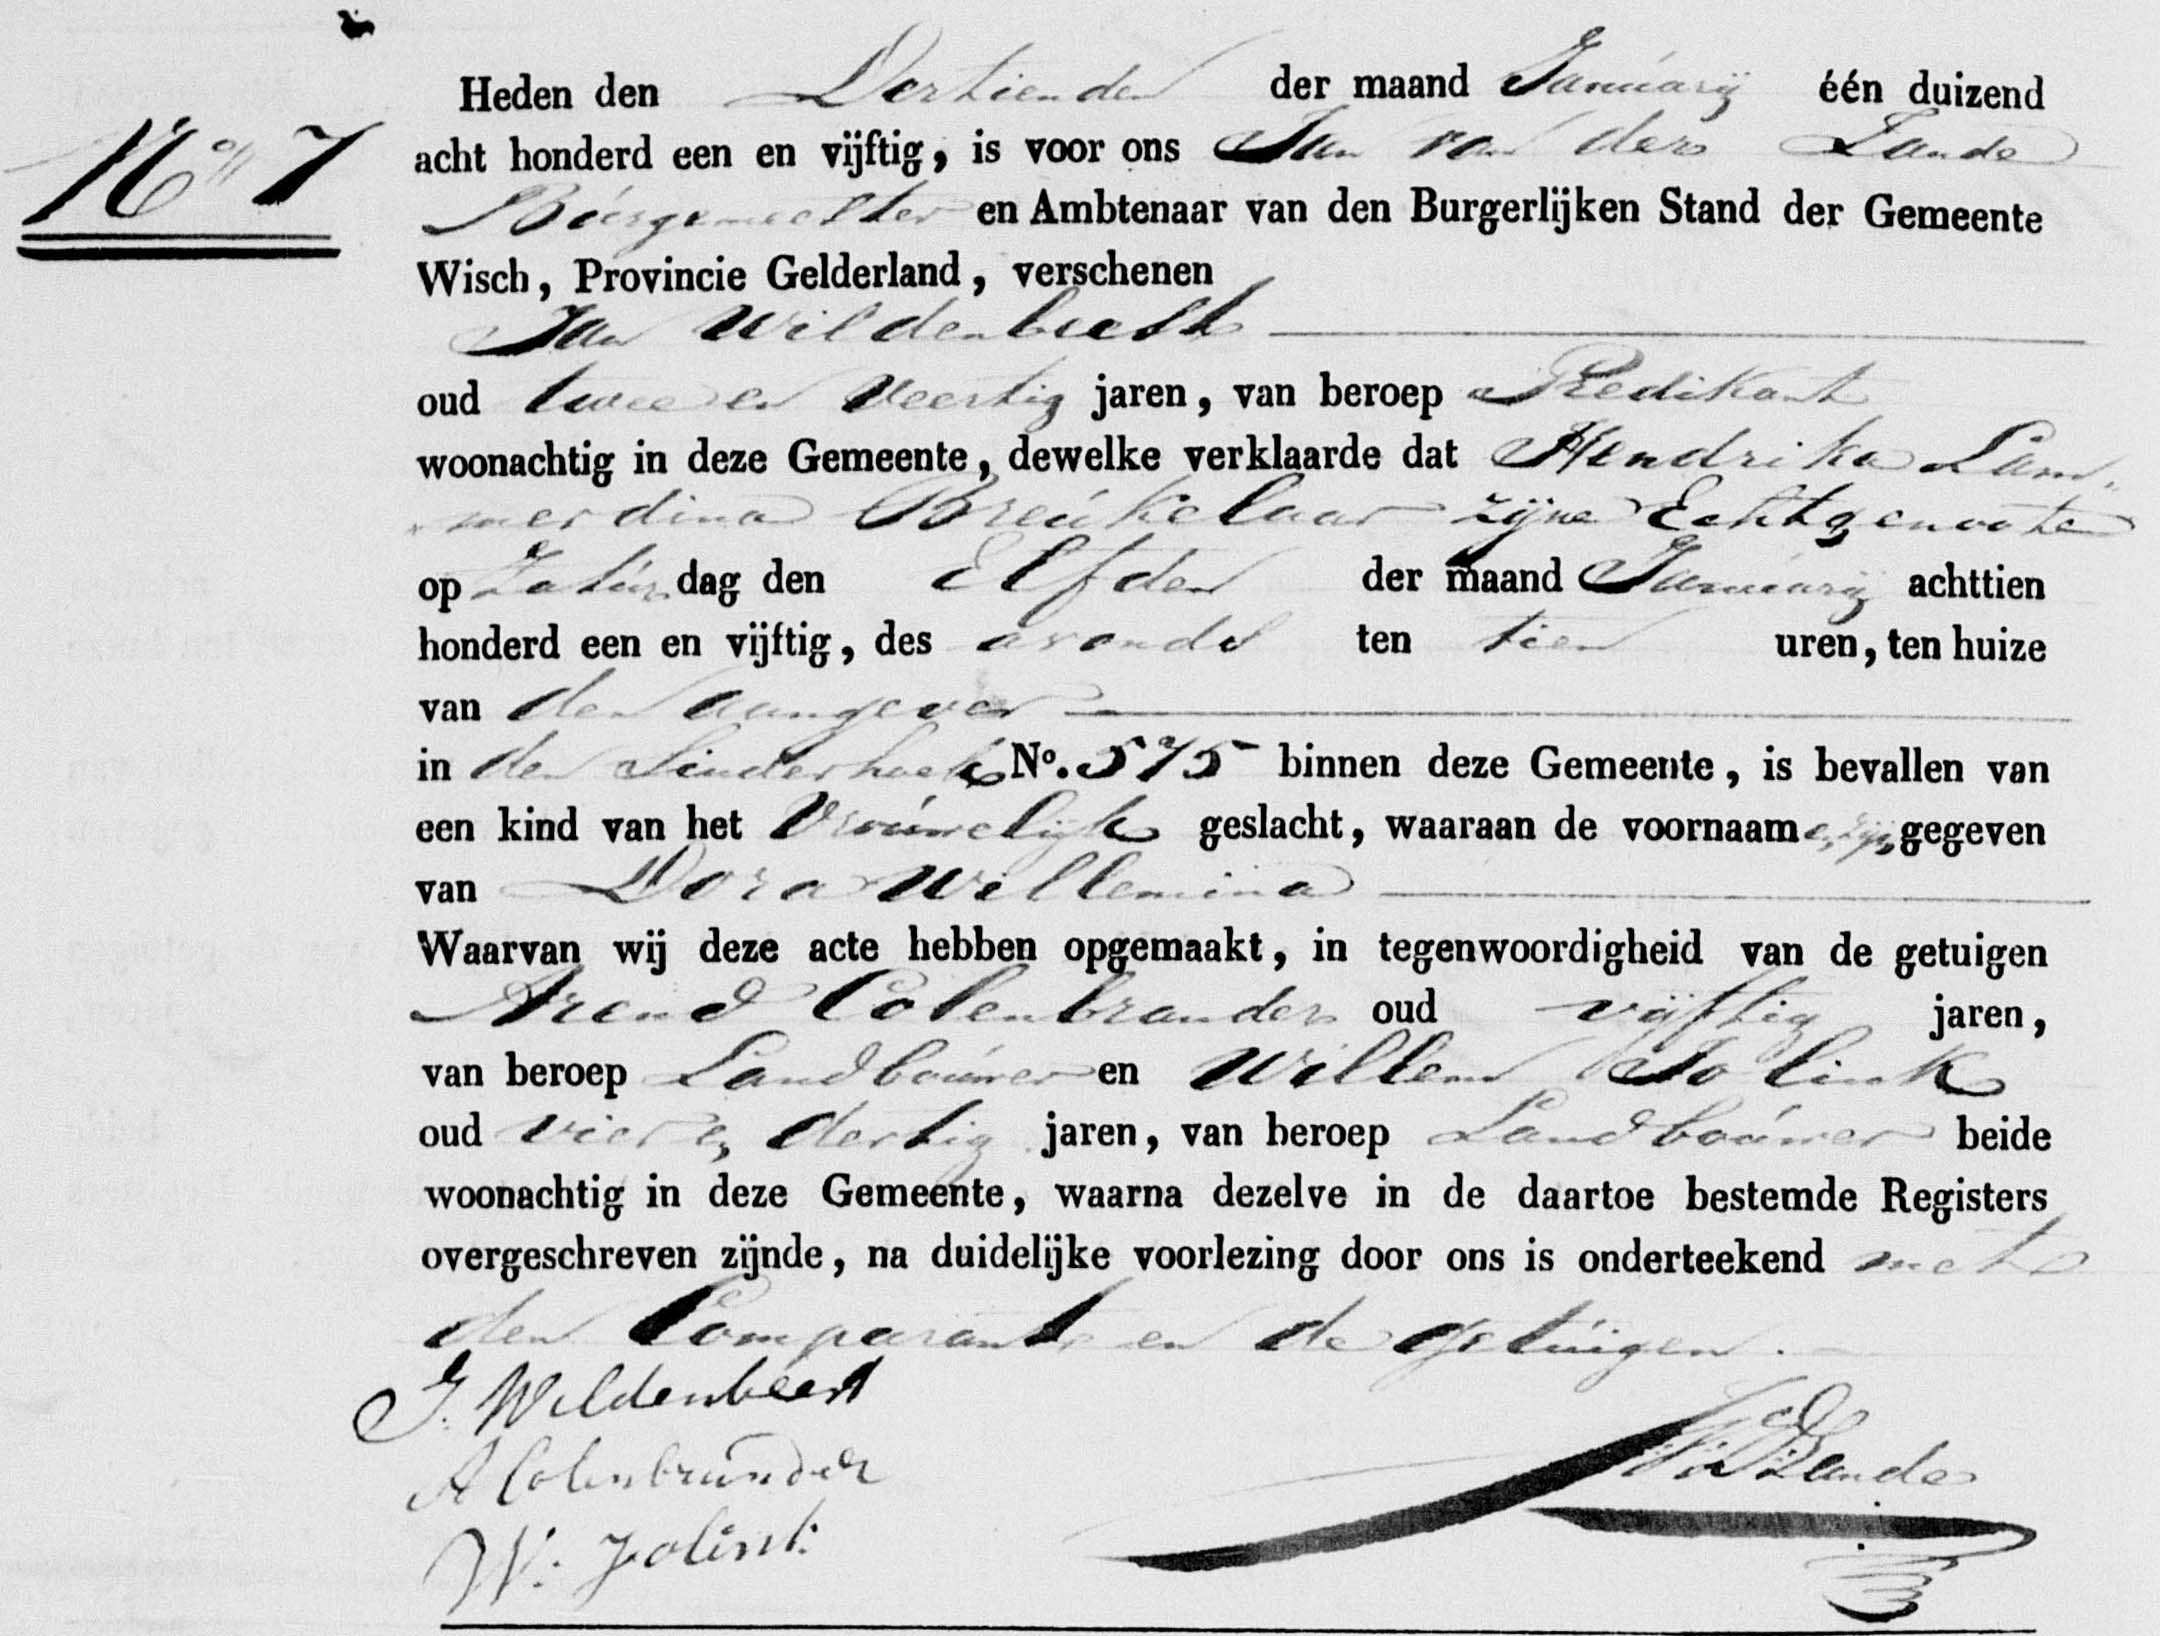 No 7
Heden den Dertienden der maand Januarij één duizend
acht honderd een en vijftig, is voor ons Jan van der Zande
Burgemeester en Ambtenaar van den Burgerlijken Stand der Gemeente
Wisch, Provincie Gelderland, verschenen
Jan Wildenbeest
oud twee en Veertig jaren, van beroep Predikant
woonachtig in deze Gemeente, dewelke verklaarde dat Hendrika Lam„
„merdina Breukelaar zijne Echtgenoote
op Zatur dag den Elfden der maand Januarij achttien
honderd een en vijftig, des avonds ten tien uren, ten huize
van den aangever
in den Sinderhoek No. 575 binnen deze Gemeente, is bevallen van
een kind van het Vrouwelijk geslacht, waaraan de voornaam en zijn gegeven
van Dora Willemina
Waarvan wij deze acte hebben opgemaakt, in tegenwoordigheid van de getuigen
Arend Colenbrander oud vijftig jaren,
van beroep Landbouwer en Willem Jolink
oud vier en dertig jaren, van beroep Landbouwer beide
woonachtig in deze Gemeente, waarna dezelve in de daartoe bestemde Registers
overgeschreven zijnde, na duidelijke voorlezing door ons is onderteekend met
den Comparant en de getuigen.
J. Wildenbeest
A Colenbrander
W. Jolink
Zande